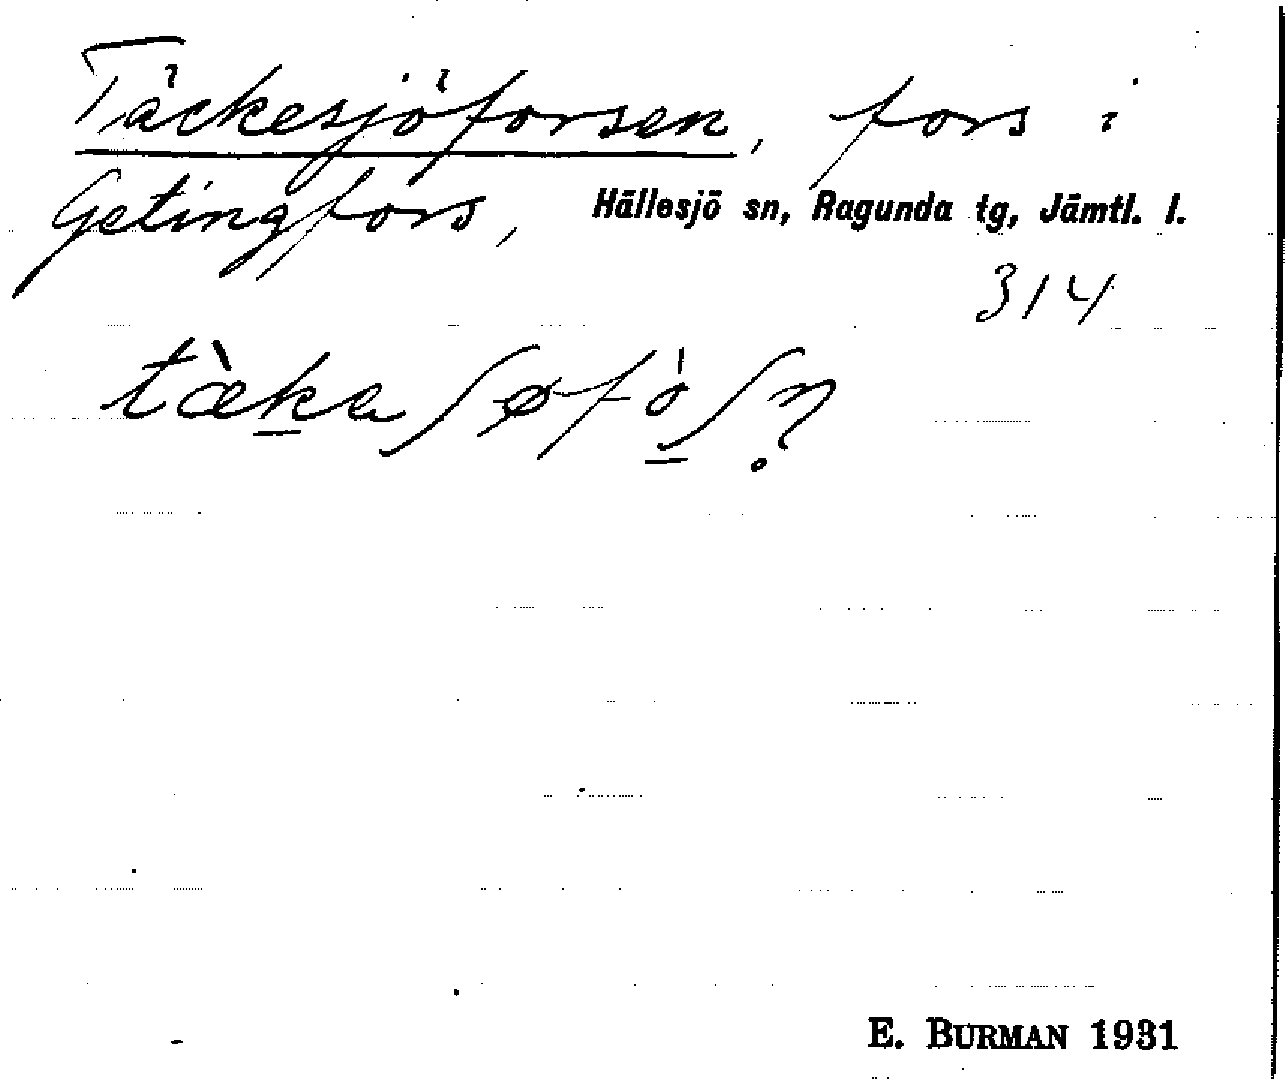 Täckesjöforsen, fors i
Getingfors, Hällesjö sn, Ragunda tg, Jämtl. l.
314
tὰ̀kaʃøfòʃn̥
E. BURMAN 1931